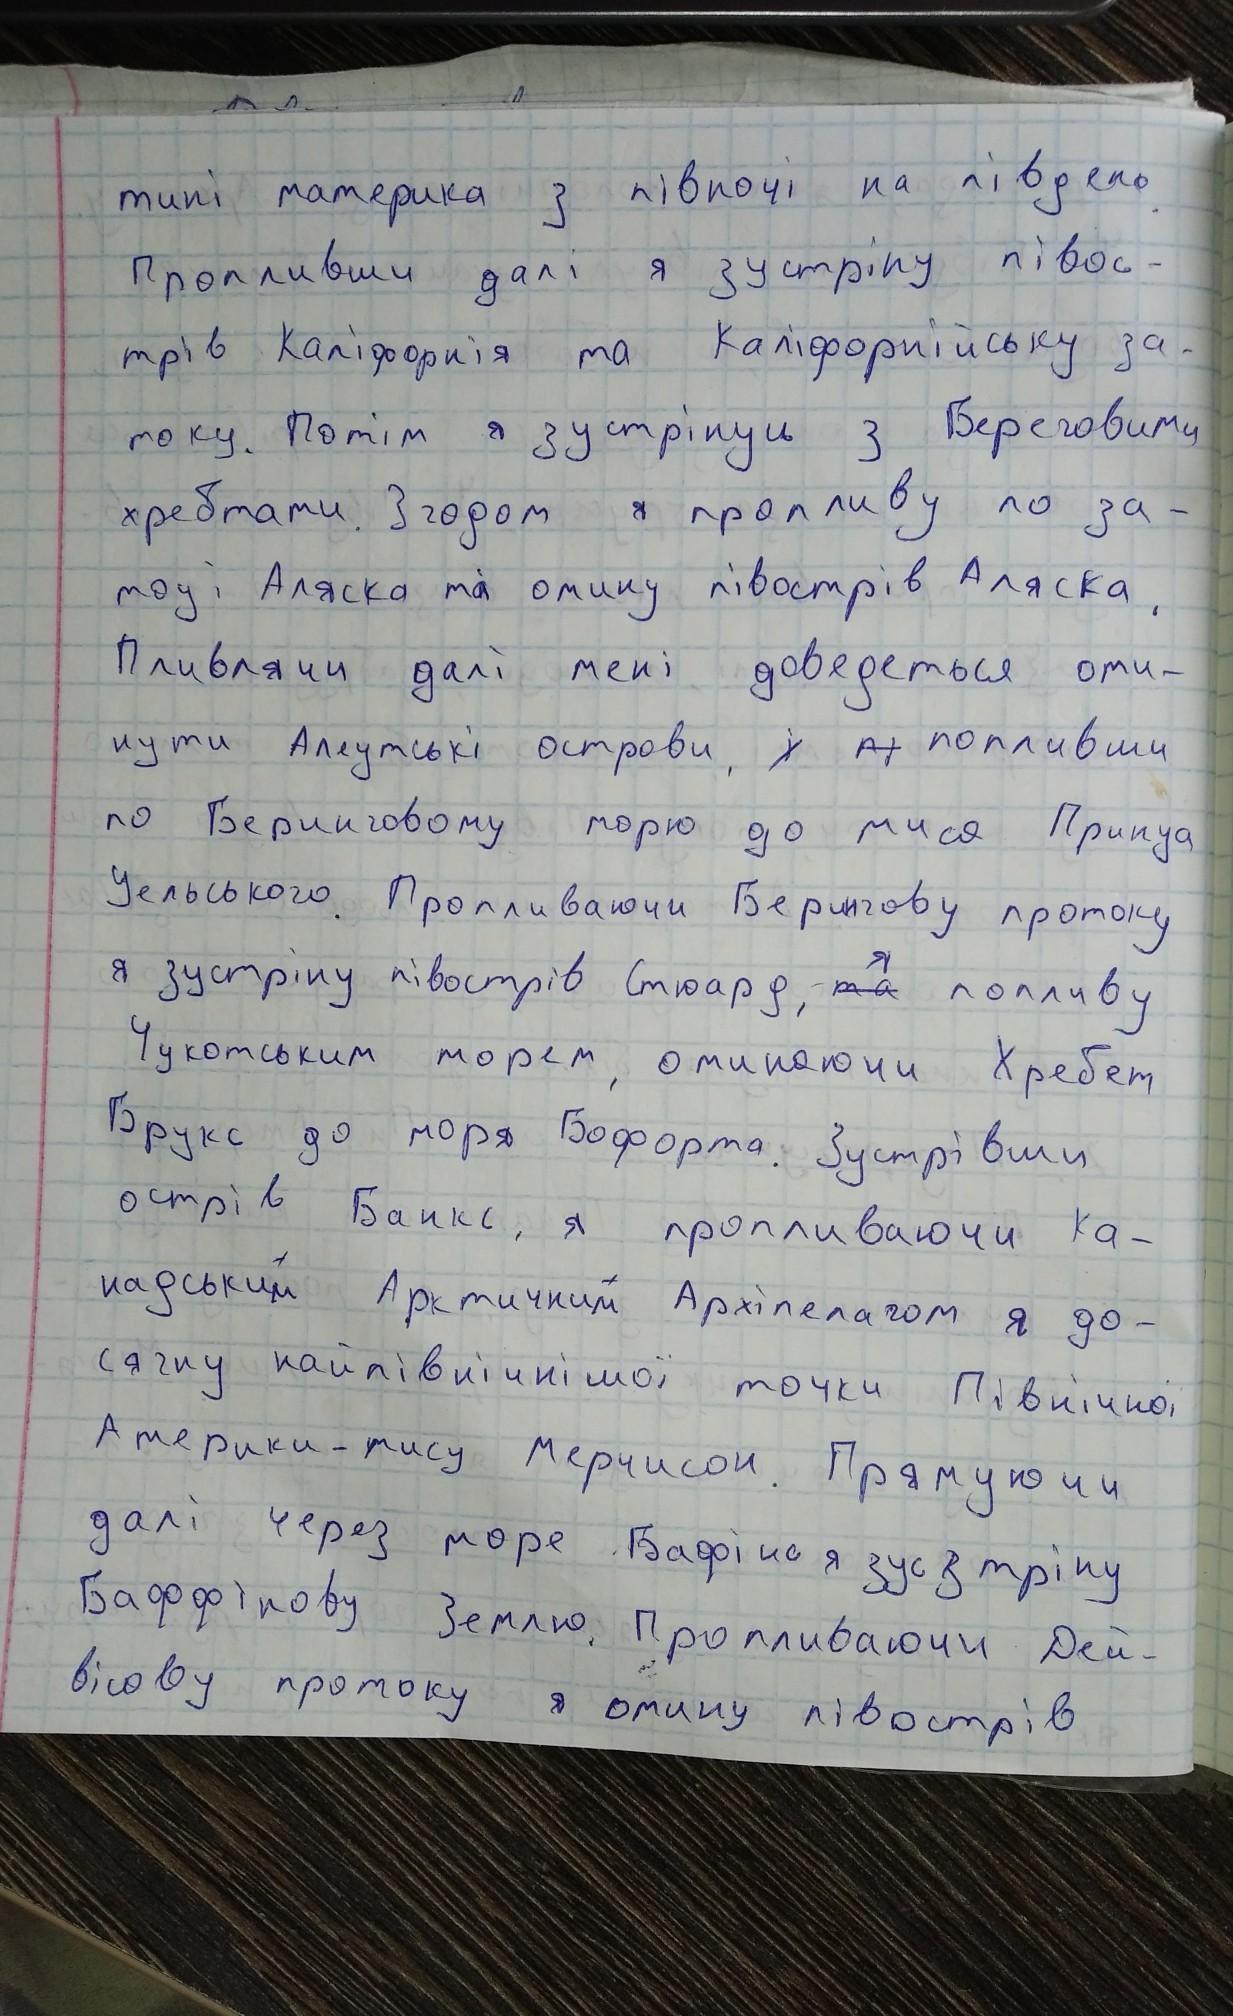 тині материка з півночі на південь.
Пропливши далі я зустріну півос-
трів Каліфорнія та Каліфорнійську за-
току. Потім я зустрінусь з Береговими
хребтами. Згодом я пропливу по за-
тоці Аляска та омину півострів Аляска.
Пливлячи далі мені доведеться оми-
нути Алеутські острови, попливши
по Беринговому морю до миса Принца
Уельського. Пропливаючи Берингову протоку
я зустріну півострів Стюард, я попливу
Чукотським морем, оминаючи Хребет
Брукс до моря Бофорта. Зустрівши
острів Банкс, я пропливаючи Ка-
надський Арктичний Архіпелагом я до-
сягну найпівнічнішої точки Північної
Америки-мису Мерчисон. Прямуючи
далі через море Бафіна я зусзтріну
Баффінову Землю. Пропливаючи Дей-
вісову протоку я омину півострів